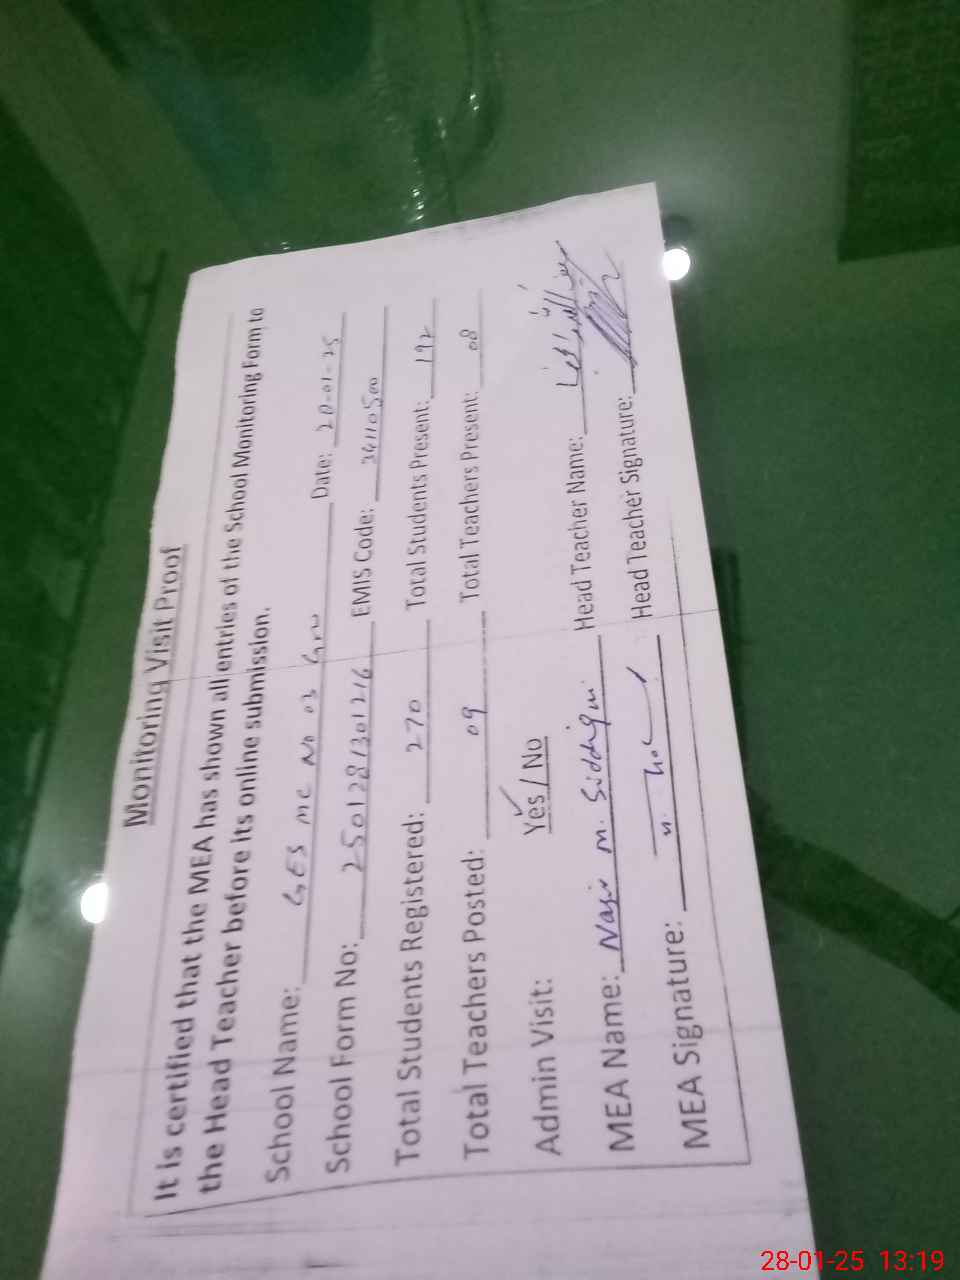 Monitoring Visit Proof
It is certified that the MEA has shown all entries of the School Monitoring Form to
the Head Teacher before its online submission.
School Name: GES MC No 03 Grw Date: 28-01-25
School Form No: 2501281301216 EMIS Code: 34110500
Total Students Registered: 270 Total Students Present: 192
Total Teachers Posted: 09 Total Teachers Present: 08
Admin Visit: Yes / No
MEA Name: Nasir M. Siddiqui Head Teacher Name:
MEA Signature: Head Teacher Signature:
28-01-25 13:19